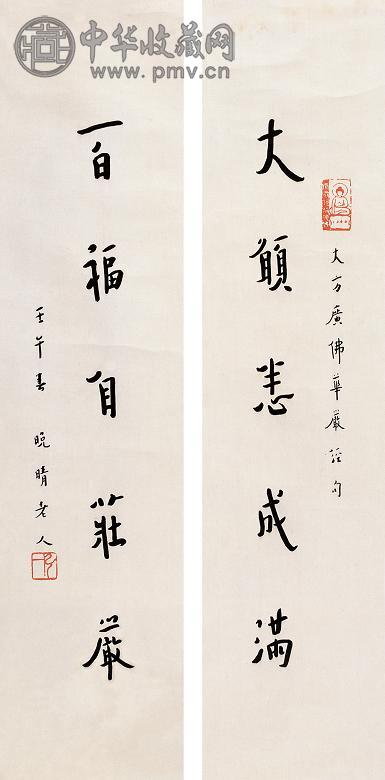 中华收藏网
www.pmv.cn
大方廣佛華嚴經句
大願悉成滿
百福自莊嚴
壬午春 晚晴老人